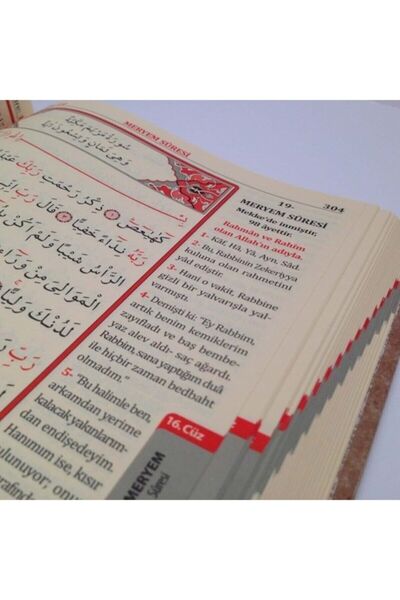 MERYEM SÛRESİ
سُورَةُ مَرْيَمَ مَكِّيَّةٌ
وَهِيَ ثَمَانٍ وَتِسْعُونَ اٰيَةً
كٓهٰيٰعٓصٓ ذِكْرُ رَحْمَتِ رَبِّكَ
رَبَّهُ نِدَٓاءً خَفِيًّا قَالَ رَبِّ
الرَّأْسُ شَيْبًا وَلَمْ اَكُنْ
الْمَوَالِيَ مِنْ وَرَٓاء۪ي
لَدُنْكَ وَلِيًّا
رَبِّ
19- 304
MERYEM SÛRESİ
Mekke'de inmiştir.
98 âyettir.
Rahmân ve Rahîm
olan Allah'ın adıyla.
1- Kâf, Hâ, Yâ, Ayn, Sâd.
2- Bu, Rabbinin Zekeriyya
kuluna olan rahmetini
yâd ediştir.
3- Hani o vakit, Rabbine
gizli bir yalvarışla yal-
varmıştı.
4- Demişti ki: "Ey Rabbim,
artık benim kemiklerim
zayıfladı ve baş bembe-
yaz alev aldı- saç ağardı.
Rabbim, sana yaptığım duâ
ile hiçbir zaman bedbaht
olmadım."
5- "Bu hâlimle ben,
arkamdan yerime
kalacak yakınlarım-
dan endişedeyim.
Hanımım ise, kısır
ulunuyor; onu
arafından
16. Cüz
MERYEM
Sûresi